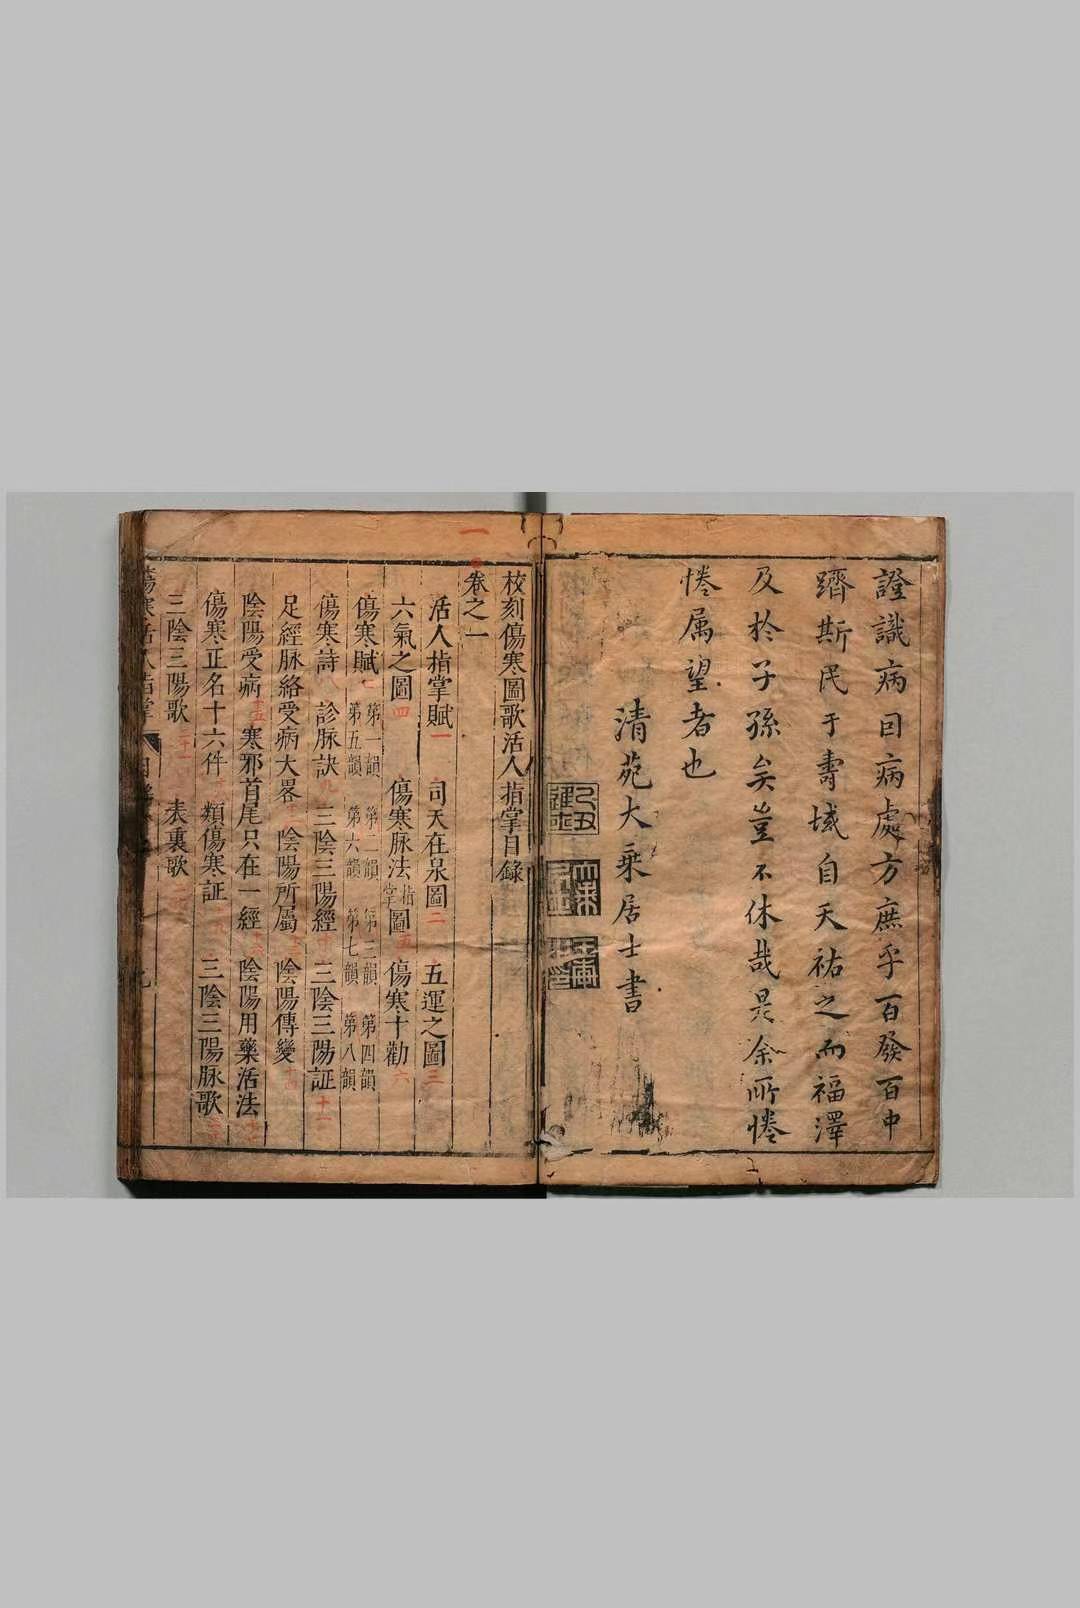 證識病因病處方庶乎百發百中
躋斯民于壽域自天祐之而福澤
及於子孫矣豈不休哉是余所惓
惓属望者也
清苑大乘居士書
校刻傷寒圖歌活人指掌目錄
一
卷之一
活人指掌賦一 司天在泉圖二 五運之圖三
六氣之圖四 傷寒脉法指掌圖五 傷寒十勸六
傷寒賦七 第一韻 第二韻 第三韻 第四韻
第五韻 第六韻 第七韻 第八韻
傷寒詩八 診脉訣九 三陰三陽經十 三陰三陽証十一
足經脉絡受病大畧 陰陽所屬 陰陽傳變
陰陽受病十五 寒邪首尾只在一經十六 陰陽用藥活法
傷寒正名十六件 類傷寒証 三陰三陽脉歌
三陰三陽歌二十一 表裏歌
傷寒活人指掌